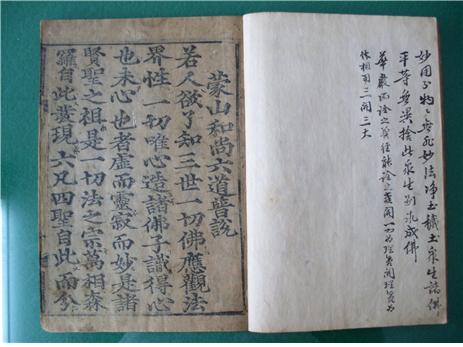 妙用物〻無非妙法淨土穢土衆生諸佛
平等無異捨此衆生別求成佛
華嚴所詮之義經能詮之
体相用三開三大
蒙山和尚六道普說
若人欲了知三世一切佛應觀法
界性一切唯心造諸佛子識得心
也未心也者虛而靈寂而妙是諸
賢聖之祖是一切法之宗萬相森
羅自此發現六凡四聖自此而分